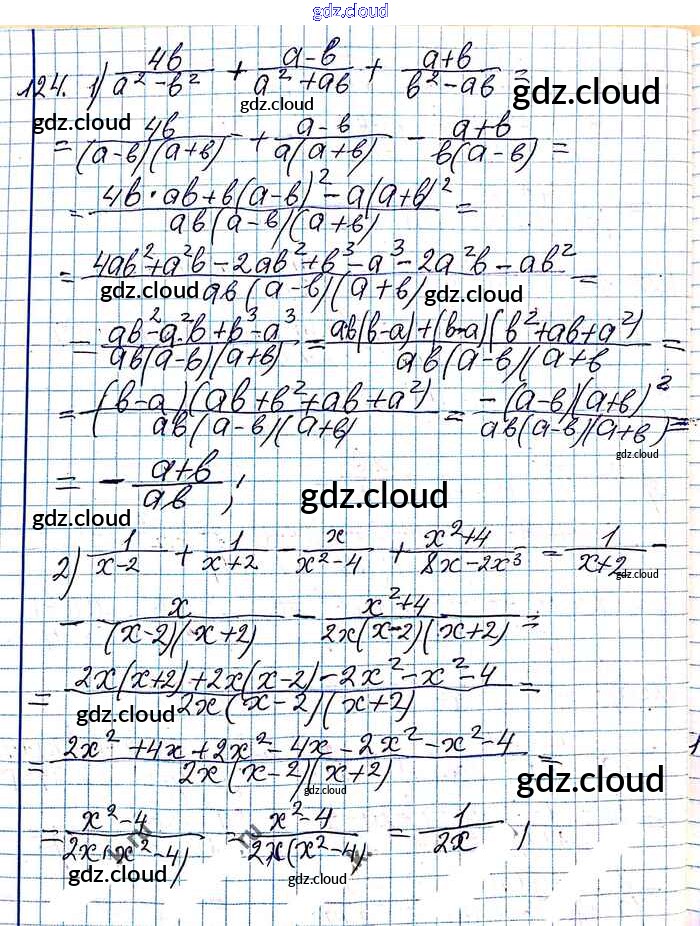 gdz.cloud
124. 1) 4b/(a² - b²) + (a-b)/(a² + ab) + (a+b)/(b² - ab) =
gdz.cloud gdz.cloud gdz.cloud
= 4b/((a-b)(a+b)) + (a-b)/(a(a+b)) - (a+b)/(b(a-b)) =
= (4b·ab + b(a-b)² - a(a+b)²)/(ab(a-b)(a+b)) =
= (4ab² + a²b - 2ab² + b³ - a³ - 2a²b - ab²)/(ab(a-b)(a+b)) =
gdz.cloud gdz.cloud
= (ab² - a²b + b³ - a³)/(ab(a-b)(a+b)) = (ab(b-a) + (b-a)(b² + ab + a²))/(ab(a-b)(a+b =
= (b-a)(ab + b² + ab + a²)/(ab(a-b)(a+b)) = -(a-b)(a+b)²/(ab(a-b)(a+b)) =
gdz.cloud
= - (a+b)/(ab) ;
gdz.cloud gdz.cloud
2) 1/(x-2) + 1/(x+2) - x/(x²-4) + (x²+4)/(8x-2x³) = 1/(x+2) -
gdz.cloud
- x/((x-2)(x+2)) - (x²+4)/(2x(x-2)(x+2)) =
= (2x(x+2) + 2x(x-2) - 2x² - x² - 4)/(2x(x-2)(x+2)) =
gdz.cloud
= (2x² + 4x + 2x² - 4x - 2x² - x² - 4)/(2x(x-2)(x+2)) =
gdz.cloud gdz.cloud
= (x²-4)/(2x(x²-4)) = (x²-4)/(2x(x²-4)) = 1/(2x) ;
gdz.cloud gdz.cloud